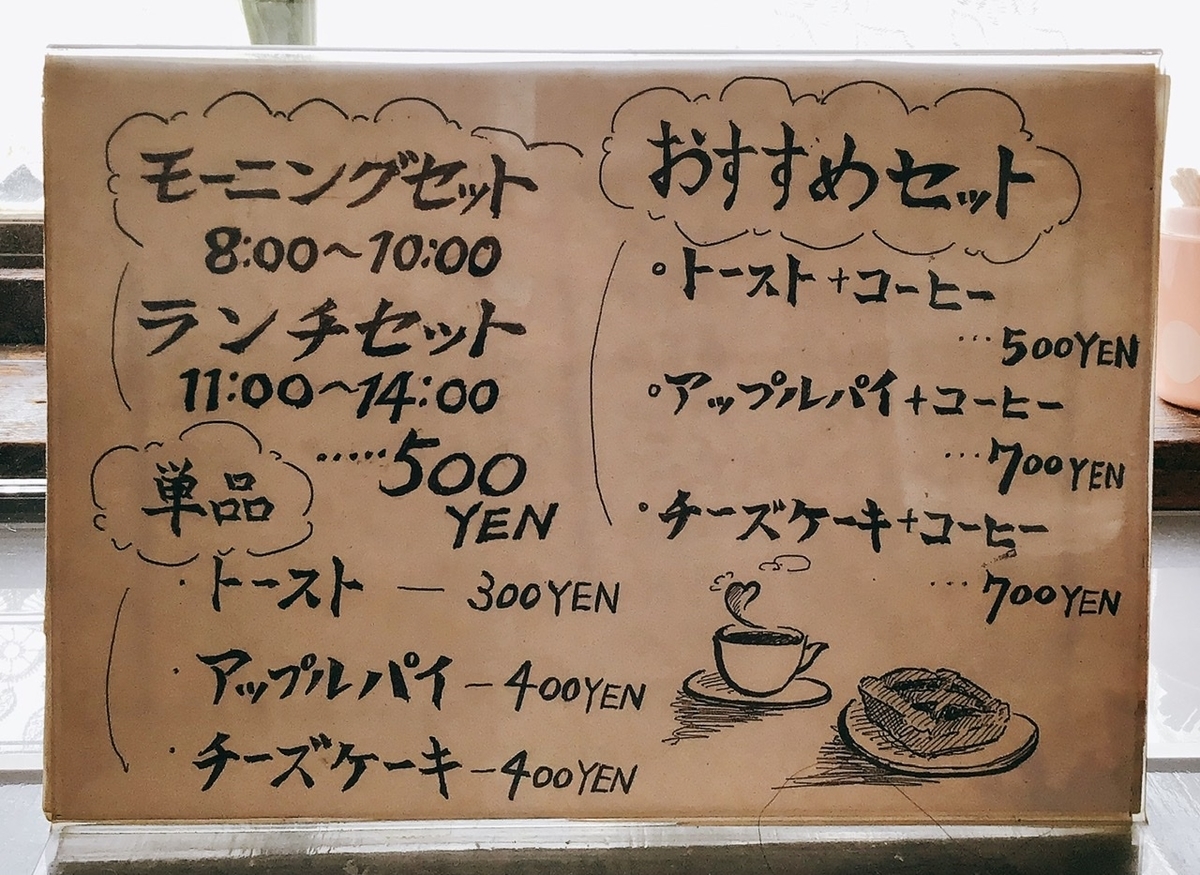 モーニングセット
8:00〜10:00
ランチセット
11:00〜14:00
‥‥‥500
YEN
単品
・トースト — 300YEN
・アップルパイ — 400YEN
・チーズケーキ — 400YEN
おすすめセット
○トースト+コーヒー
…500YEN
○アップルパイ+コーヒー
…700YEN
○チーズケーキ+コーヒー
…700YEN